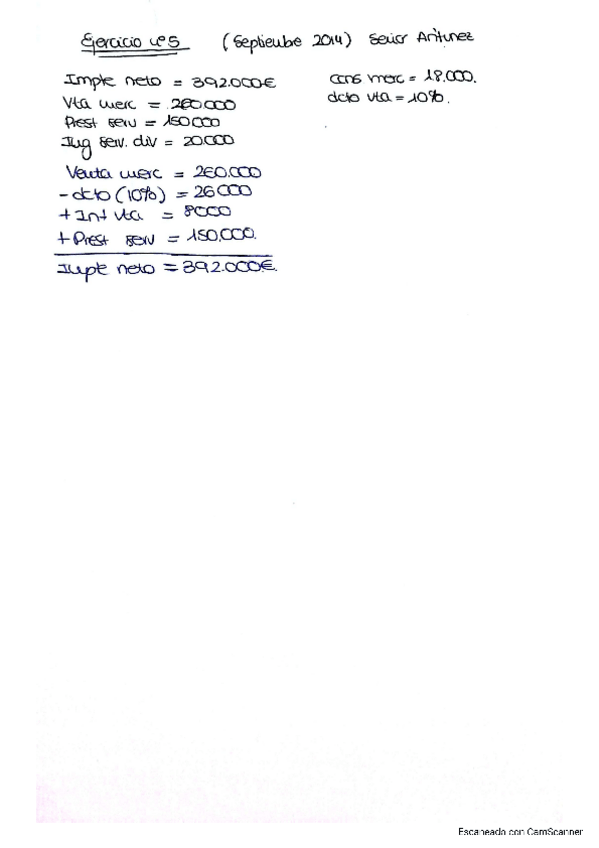 Ejercicio nº5 (Septiembre 2014) Señor Antunez
Impte neto = 392.000€ cons merc = 18.000.
Vta merc = 260.000 dcto vta = 10%.
Prest serv = 150000
Ing serv. div = 20000
Venta merc = 260.000
- dcto (10%) = 26000
+ Int vta = 8000
+ Prest serv = 150.000.
Impte neto = 392.000€.
Escaneado con CamScanner